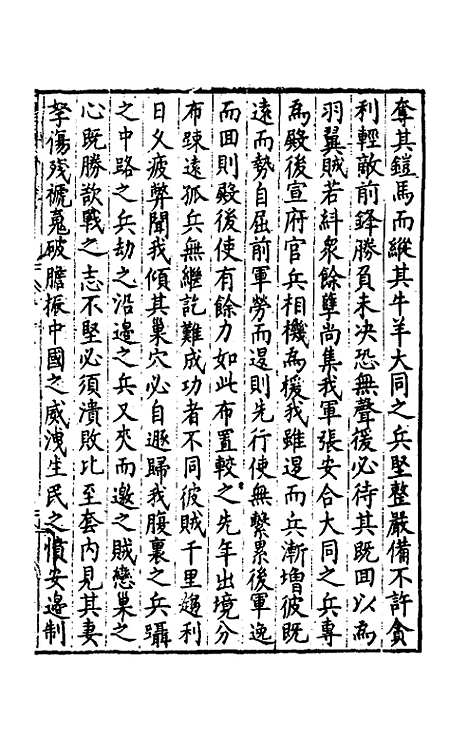 奪其鎧馬而縱其牛羊大同之兵堅整嚴備不許貪
利輕敵前鋒勝負未决恐無聲援必待其既囬以為
羽翼賊若糾衆餘孽尚集我軍張安合大同之兵專
為殿後宣府官兵相機為援我雖還而兵漸增彼既
遠而勢自屈前軍勞而還則先行使無繫累後軍逸
而囬則殿後使有餘力如此布置較之先年出境分
布踈遠孤兵無繼訖難成功者不同彼賊千里趨利
日乆疲弊聞我傾其巢穴必自遯歸我腹裏之兵躡
之中路之兵劫之沿邊之兵又夾而邀之賊戀巢之
心既勝欲戰之志不堅必須潰敗比至套内見其妻
孥傷殘褫䰟破膽振中國之威洩生民之憤安邊制